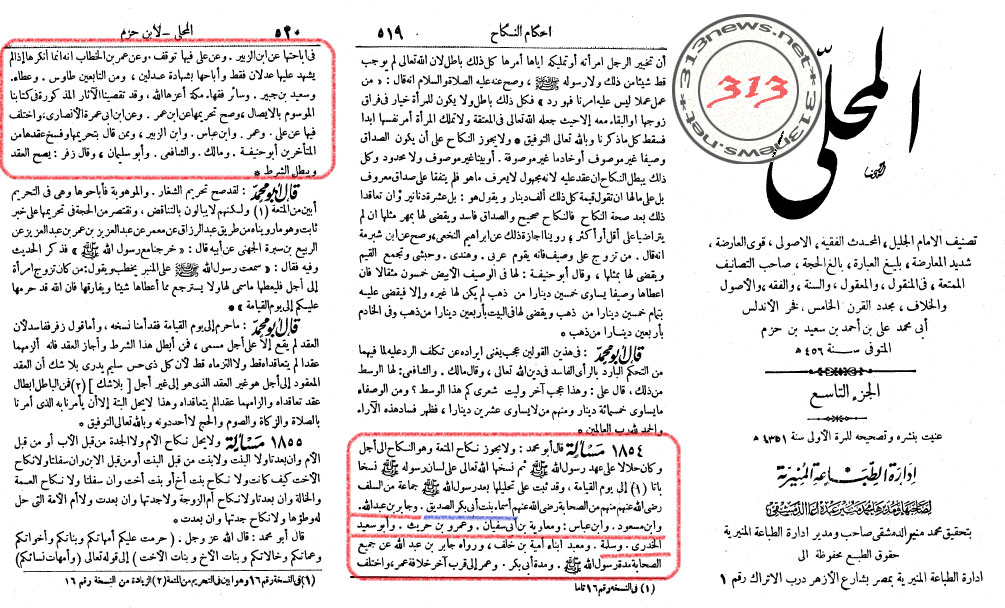 المحلى
تصنيف الامام الجليل ، المحدث ، الفقيه ، الاصولى ، قوى العارضة ،
شديد المعارضة ، بليغ العبارة ، بالغ الحجة ، صاحب التصانيف
الممتعة ، فى المنقول ، والمعقول ، والسنة ، والفقه ، والاصول
والخلاف ، مجدد القرن الخامس ، فخر الأندلس
أبى محمد على بن أحمد بن سعيد بن حزم
المتوفى سنة ٤٥٦ هـ
الجزء التاسع
عنيت بنشره وتصحيحه للمرة الاولى سنة ١٣٥١ هـ
إدارة الطباعة المنيرية
لصاحبها ومديرها محمد منير عبده أغا الدمشقى
بتحقيق محمد منير الدمشقى صاحب ومدير ادارة الطباعة المنيرية
حقوق الطبع محفوظة الى
ادارة الطباعة المنيرية بمصر بشارع الأزهر درب الاتراك رقم ١
313news.net
313
احكام النكاح ٥١٩
أن تخيير الرجل امرأته أو تمليكه اياها أمرها كل ذلك باطل لان الله تعالى لم يوجب
قط شيئا من ذلك ولا رسوله ﷺ ، وصح عنه عليه الصلاة والسلام انه قال : « من
عمل عملا ليس عليه امرنا فهو رد » فكل ذلك باطل ولا يكون للمرأة خيار فى فراق
زوجها أو البقاء معه إلا حيث جعله الله تعالى فى المعتقة ولا تملك المرأة أمر نفسها ابدا
فسقط كل ما ذكرنا وبالله تعالى التوفيق * ولا يجوز النكاح على أن يكون الصداق
وصيفا غير موصوف أو خادما غير موصوفة . أو بيتا غير موصوف ولا محدود وكل
ذلك يبطل النكاح ان عقد عليه لانه مجهول لا يعرف ما هو فلم يتفقا على صداق معروف
بل على مالها ان تقول قيمة كل ذلك ألف دينار ويقول هو : بل عشرة دنانير وان تعاقدا
ذلك بعد صحة النكاح فالنكاح صحيح والصداق فاسد ويقضى لها بمهر مثلها ان لم
يتراضيا على أقل أو أكثر ، روينا اجازة ذلك عن ابراهيم النخعى ، وصح عن ابن شبرمة
انه قال . من تزوج على وصيف فانه يقوم عربى . وهندى . وحبشى وتجمع القيم
ويقضى لها بثلثها ، وقال أبو حنيفة : لها فى الوصيف الأبيض خمسون مثقالا فان
اعطاها وصيفا يساوى خمسين دينارا من ذهب لم يكن لها غيره وإلا فيقضى عليه
بتمام خمسين دينارا من ذهب ويقضى لها فى البيت بأربعين دينارا من ذهب وفى الخادم
بأربعين دينارا من ذهب *
قال أبو محمد : فى هذين القولين عجب يغنى ايراده عن تكلف الرد عليه لما فيهما
من التحكم البارد بالرأى الفاسد فى دين الله تعالى ، وقال مالك . والشافعى : لها الوسط
من ذلك ، قال على : وهذا عجب آخر وليت شعرى كم هذا الوسط ؟ ومن الوصفاء
ما يساوى خمسمائة دينار ومنهم من لا يساوى عشرين دينارا ، فظهر فساد هذه الآراء
والحمد لله رب العالمين *
١٨٥٤ مسألة قال أبو محمد : ولا يجوز نكاح المتعة وهو النكاح الى أجل
وكان حلالا على عهد رسول الله ﷺ ثم نسخها الله تعالى على لسان رسوله ﷺ نسخا
باتا (١) إلى يوم القيامة ، وقد ثبت على تحليلها بعد رسول الله ﷺ جماعة من السلف
رضى الله عنهم منهم من الصحابة رضى الله عنهم أسماء بنت أبى بكر الصديق . وجابر بن عبد الله .
وابن مسعود . وابن عباس . ومعاوية بن أبى سفيان . وعمرو بن حريث . وأبو سعيد
الخدرى . وسلمة . ومعبد ابناء أمية بن خلف ، ورواه جابر بن عبد الله عن جميع
الصحابة مدة رسول الله ﷺ . ومدة أبى بكر . وعمر إلى قرب آخر خلافة عمر ، واختلف
(١) فى النسخة رقم ١٦ تاما
٥٢٠ المحلى - لابن حزم
فى اباحتها عن ابن الزبير . وعن على فيها توقف ، وعن عمر بن الخطاب انه انما أنكرها إذا لم
يشهد عليها عدلان فقط وأباحها بشهادة عدلين ، ومن التابعين طاوس . وعطاء .
وسعيد بن جبير . وسائر فقهاء مكة أعزها الله ، وقد تقصينا الآثار المذكورة فى كتابنا
الموسوم بالايصال ، وصح تحريمها عن ابن عمر . وعن ابن أبى عمرة الأنصارى ، واختلف
فيها عن على . وعمر . وابن عباس . وابن الزبير ، وممن قال بتحريمها وفسخ عقدها من
المتأخرين أبو حنيفة . ومالك . والشافعى . وأبو سليمان ، وقال زفر : يصح العقد
ويبطل الشرط *
قال أبو محمد : لقد صح تحريم الشغار . والموهوبة فأباحوها وهى فى التحريم
أبين من المتعة (١) ولكنهم لا يبالون بالتناقض ، ونقتصر من الحجة فى تحريمها على خبر
ثابت وهو ما رويناه من طريق عبد الرزاق عن معمر عن عبد العزيز بن عمر بن عبد العزيز عن
الربيع بن سبرة الجهنى عن أبيه قال : « خرجنا مع رسول الله ﷺ » فذكر الحديث
وفيه فقال : « سمعت رسول الله ﷺ على المنبر يخطب ويقول : من كان تزوج امرأة
إلى أجل فليعطها ماسمى لها ولا يسترجع مما أعطاها شيئا ويفارقها فان الله قد حرمها
عليكم إلى يوم القيامة » *
قال أبو محمد : ما حرم إلى يوم القيامة فقد أمنا نسخه ، وأما قول زفر ففاسد لأن
العقد لم يقع إلا على أجل مسمى ، فمن أبطل هذا الشرط وأجاز العقد فانه ألزمهما
عقدا لم يتعاقداه قط ولا التزماه قط لأن كل ذى حس سليم يدرى بلا شك أن العقد
المعقود إلى أجل هو غير العقد الذى هو إلى غير أجل [ بلا شك ] (٢) فمن الباطل ابطال
عقد تعاقداه والزامهما عقد لم يتعاقداه وهذا لا يحل البتة إلا أن يأمرنا به الذى أمرنا
بالصلاة والزكاة والصوم والحج لا أحد دونه وبالله تعالى التوفيق *
١٨٥٥ مسألة ولا يحل نكاح الأم ولا الجدة من قبل الأب أو من قبل
الأم وان بعدتا ولا البنت ولا بنت من قبل البنت أو من قبل الابن وان سفلتا ولا نكاح
الأخت كيف كانت ولا نكاح بنت أخ أو بنت أخت وان سفلتا ولا نكاح العمة
والخالة وان بعدتا ولا نكاح أم الزوجة ولا جدتها وان بعدت ولا أم الأمة التى حل
له وطؤها ولا نكاح جدتها وان بعدت *
قال أبو محمد : قال الله عز وجل . ( حرمت عليكم أمهاتكم وبناتكم وأخواتكم
وعماتكم وخالاتكم وبنات الأخ وبنات الأخت ) إلى قوله تعالى ( وأمهات نسائكم )
(١) فى النسخة رقم ١٦ وهو ابين فى التحريم من المتعة (٢) الزيادة من النسخة رقم ١٦